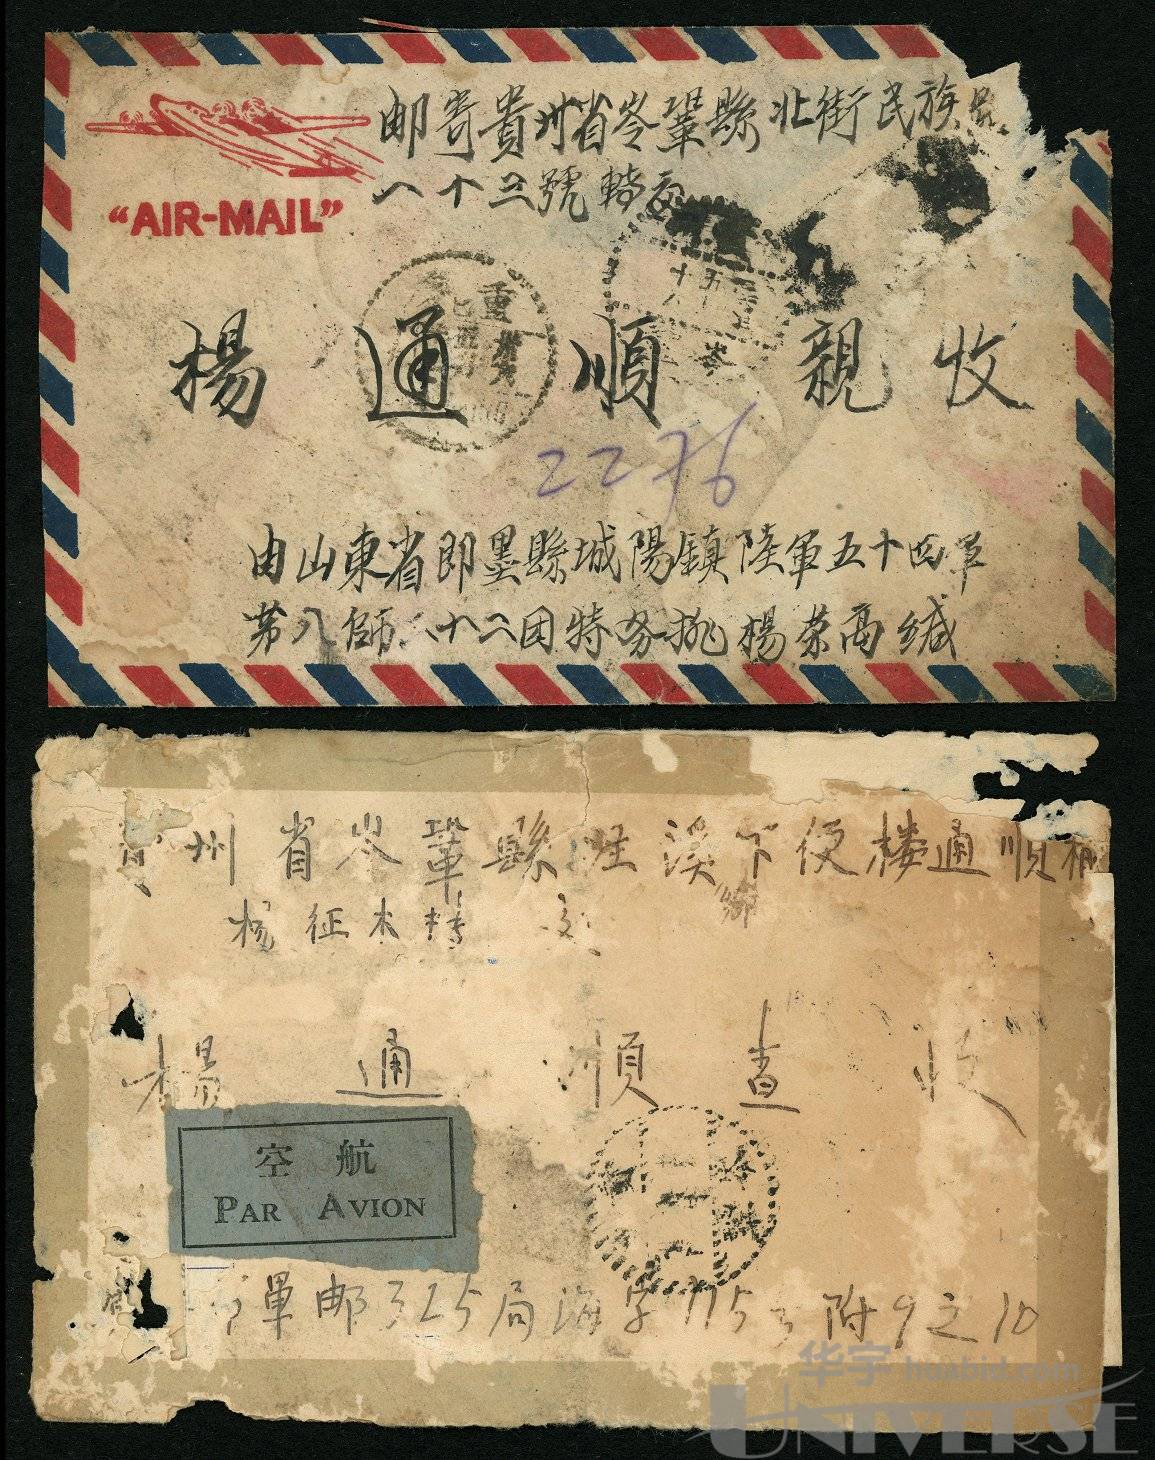 邮寄貴州省岑鞏縣北街民族
八十三號轉交
"AIR-MAIL"
楊通順親收
2276
由山東省即墨縣城陽鎮陸軍五十四軍
第八師二十二团特务排楊荣高缄
州省岑鞏縣 溪下便楼通順
鄉
楊征木轉交
楊通順查收
航空
PAR AVION
軍邮325局海字115号附9之10
华宇 huabid.com
UNIVERSE